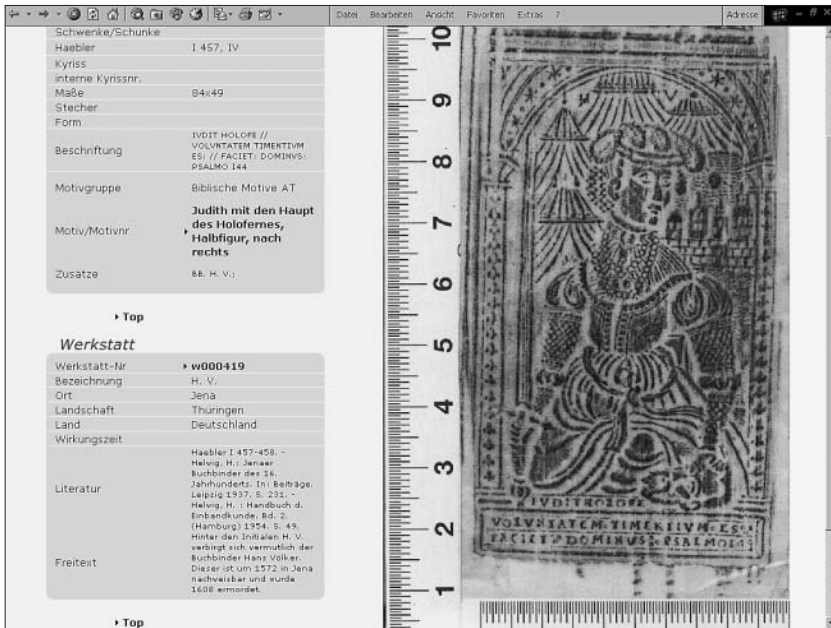 Datei Bearbeiten Ansicht Favoriten Extras ? Adresse
Schwenke/Schunke
Haebler I 457, IV
Kyriss
interne Kyrissnr.
Maße 84x49
Stecher
Form
Beschriftung IVDIT HOLOFE //
VOLVNTATEM TIMENTIVM
ES: // FACIET: DOMINVS:
PSALMO 144
Motivgruppe Biblische Motive AT
Motiv/Motivnr Judith mit den Haupt
des Holofernes,
Halbfigur, nach
rechts
Zusätze BB. H. V.;
Top
Werkstatt
Werkstatt-Nr w000419
Bezeichnung H. V.
Ort Jena
Landschaft Thüringen
Land Deutschland
Wirkungszeit
Literatur Haebler I 457-458. -
Helwig, H.: Jenaer
Buchbinder des 16.
Jahrhunderts. In: Beiträge.
Leipzig 1937, S. 231. -
Helwig, H. : Handbuch d.
Einbandkunde. Bd. 2.
(Hamburg) 1954. S. 49.
Freitext Hinter den Initialen H. V.
verbirgt sich vermutlich der
Buchbinder Hans Völker.
Dieser ist um 1572 in Jena
nachweisbar und wurde
1608 ermordet.
Top
10
9
8
7
6
5
4
3
2
1
H V
IVDIT HOLOFE
VOLVNTATEM TIMENTIVM ES
FACIET DOMINVS PSALMO 14